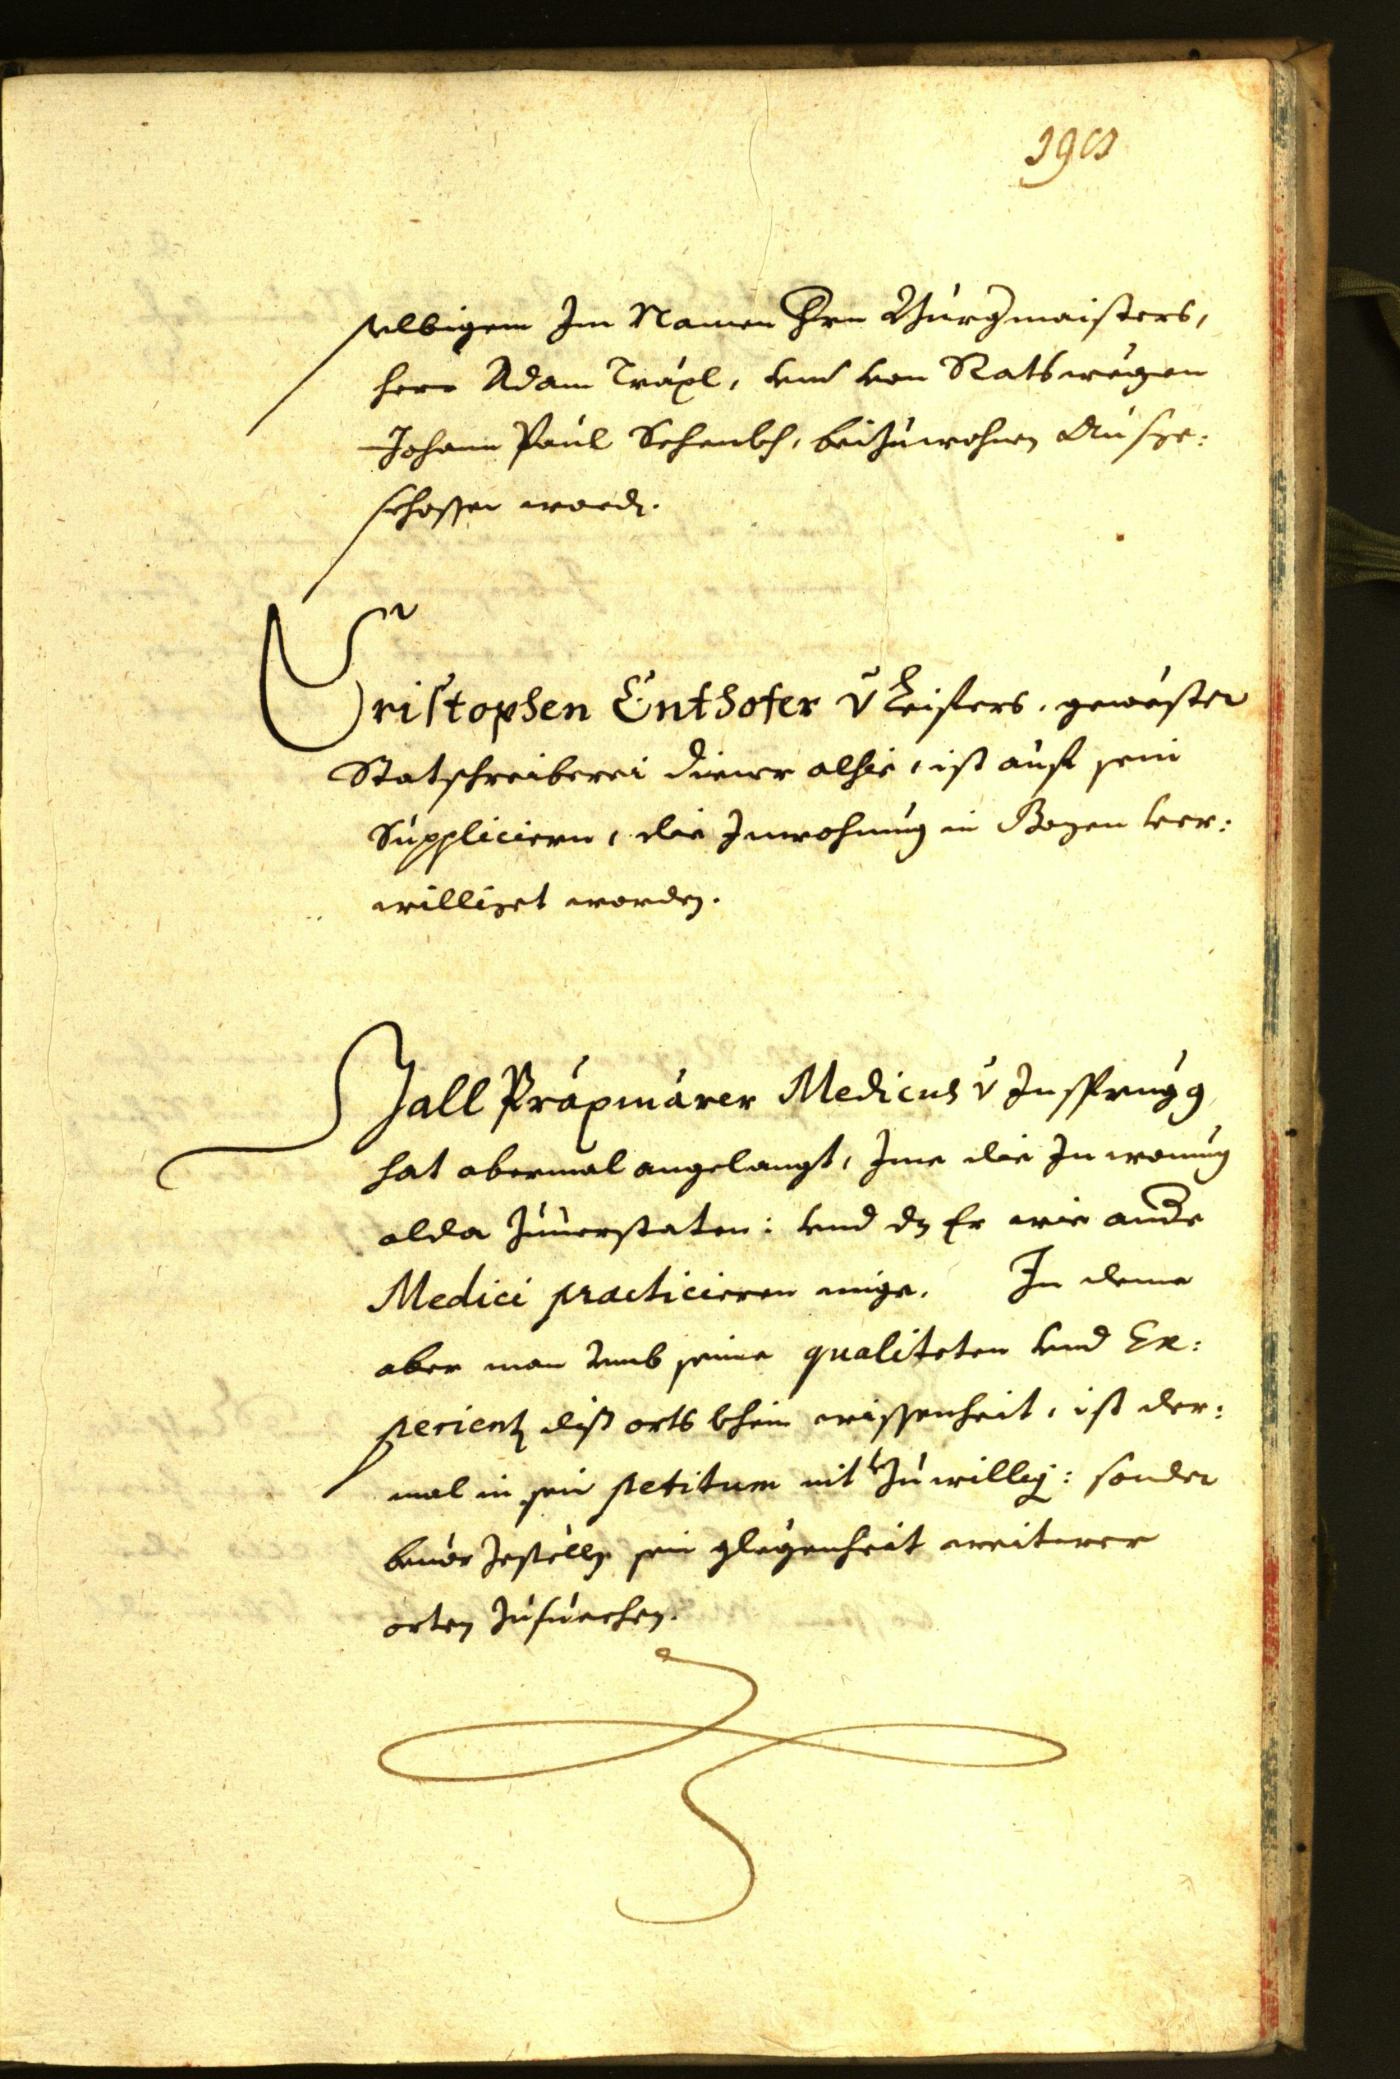 selbigem Im Namen Hrn Burgmaisters,
herr Adam Träpl, vnd von Rats wegen
Johann Paul Schenkh, beizuwohnen Ausge:
schossen word.
Cristophen Enthofer v Leifers, gewester
Statschreiberei diener alhie, ist auf sein
Suppliciern, die Inwohnung in Bozen ver:
williget worden.
Gall Präxmärer Medicus v Insprugg
hat abermal angelangt, Ime die Inwonung
alda zuuerstaten: vnd dz Er wie ande
Medici practicieren müge. In deme
aber man vmb seine qualiteten vnd Ex:
perientz diß orts khein wissenheit, ist der:
mal in sein petitum nit zuwillig: sonder
beuor sein glegenheit weiterer
orten zusuechen.